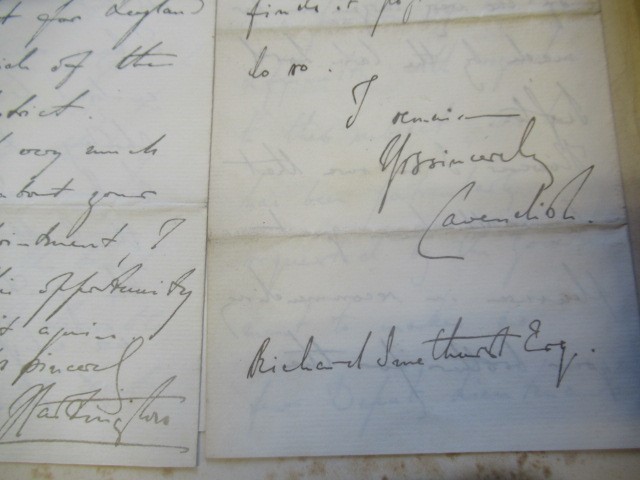 t for Leyland
of the
strict.
very much
about your
ointment, I
opportunity
it again
sincerely
Hartington
find it
do so.
I remain
Yrs sincerely
Cavendish.
Richard Smethurst Esq.